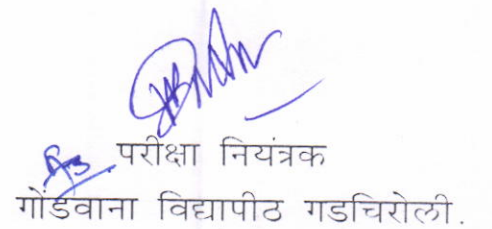 परीक्षा नियंत्रक
गोंडवाना विद्यापीठ गडचिरोली.